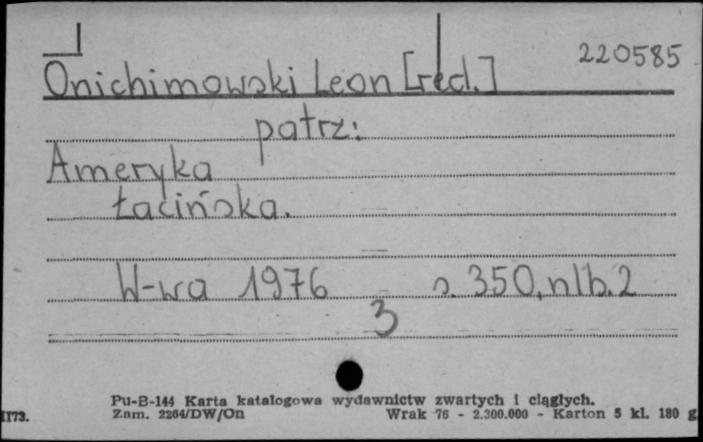 220585
Onichimowski Leon [red.]
patrz:
Ameryka
Łacińska.
W-wa 1976 s. 350, nlb. 2
3
Pu-B-144 Karta katalogowa wydawnictw zwartych i ciągłych.
II73. Zam. 2264/DW/On Wrak 76 - 2.300.000 - Karton 5 kl. 180 g